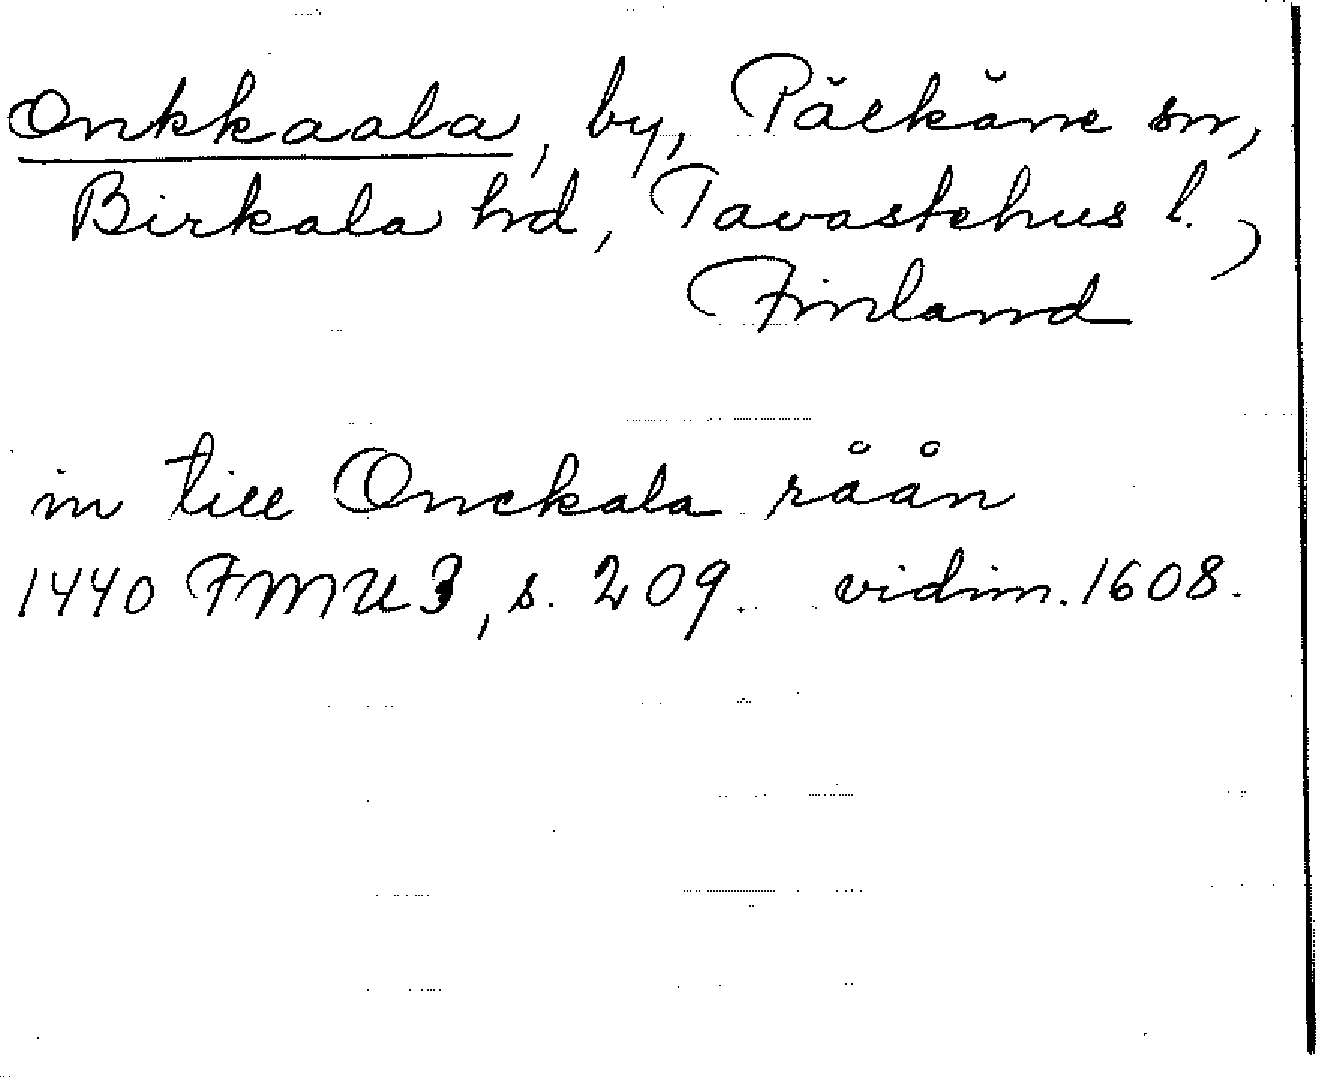 Onkkaala, by, Pälkäne sn,
Birkala hd, Tavastehus l.,
Finland
in till Onckala råån
1440 FMU 3, s. 209. vidim. 1608.